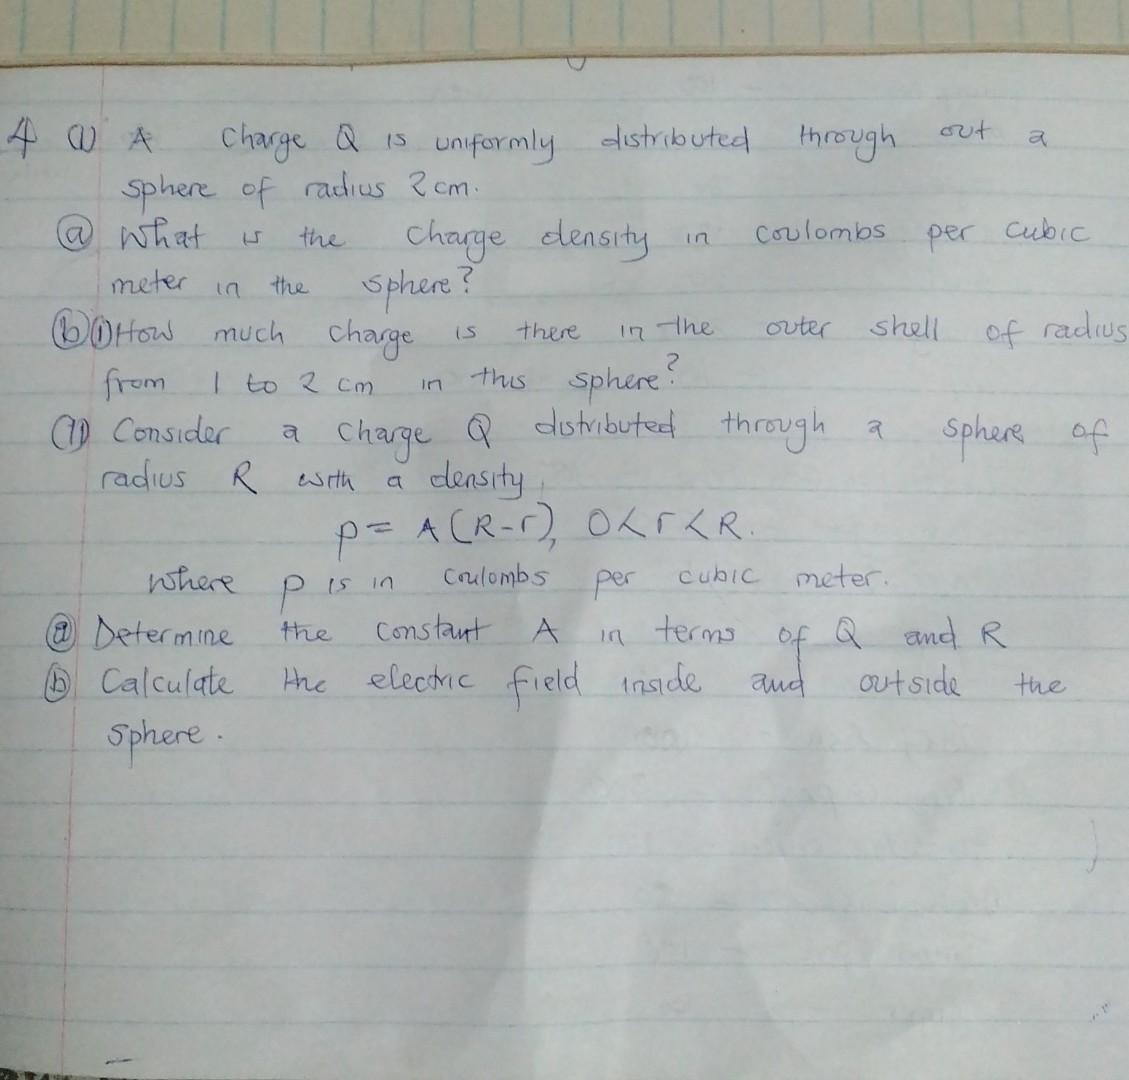 4 (1) A Charge Q is uniformly distributed through out a
sphere of radius 2 cm.
(a) What is the charge density in coulombs per cubic
meter in the sphere?
(b)(1) How much charge is there in the outer shell of radius
from 1 to 2 cm in this sphere?
(11) Consider a charge Q distributed through a sphere of
radius R with a density,
ρ = A(R-r), 0<r<R.
where ρ is in coulombs per cubic meter.
(a) Determine the constant A in terms of Q and R
(b) Calculate the electric field inside and outside the
sphere.